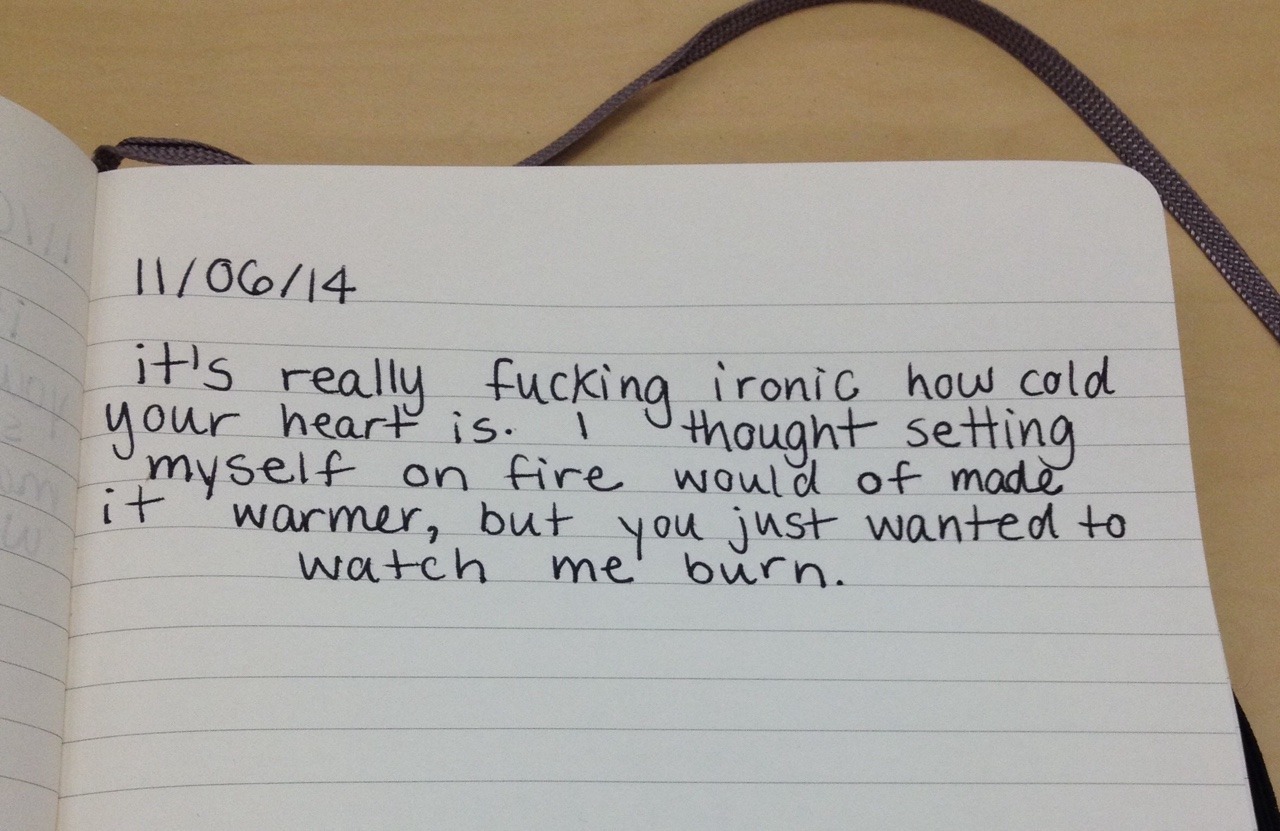 11/06/14
it's really fucking ironic how cold
your heart is. I thought setting
myself on fire would of made
it warmer, but you just wanted to
watch me burn.